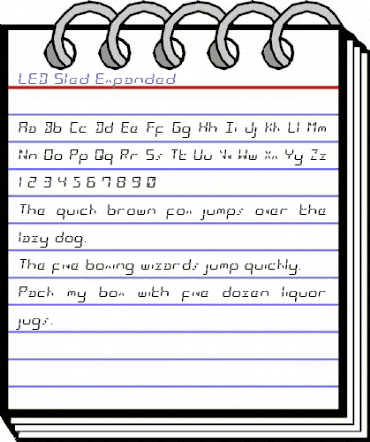 LED Sled Expanded
Aa Bb Cc Dd Ee Ff Gg Hh Ii Jj Kk Ll Mm
Nn Oo Pp Qq Rr Ss Tt Uu Vv Ww Xx Yy Zz
1 2 3 4 5 6 7 8 9 0
The quick brown fox jumps over the
lazy dog.
The five boxing wizards jump quickly.
Pack my box with five dozen liquor
jugs.